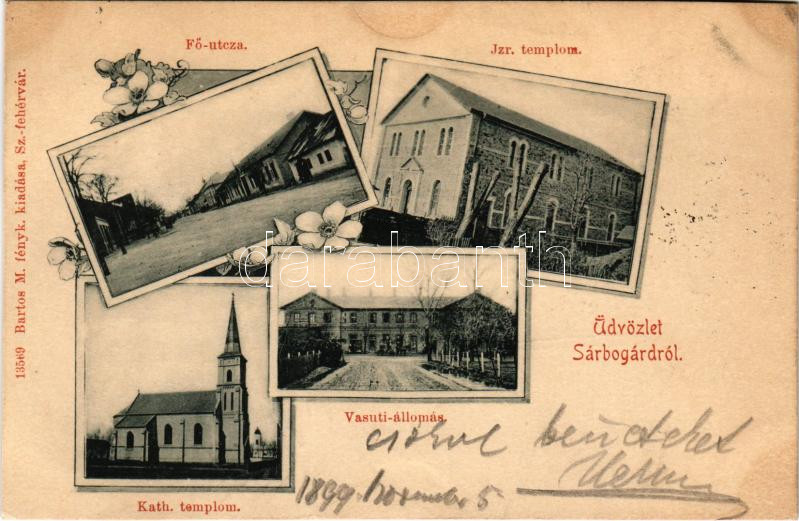 Fő-utcza.
Jzr. templom.
13569 Bartos M. fényk. kiadása, Sz.-fehérvár.
darabanth
Üdvözlet
Sárbogárdról.
Vasuti-állomás.
Kath. templom.
1899 november 5